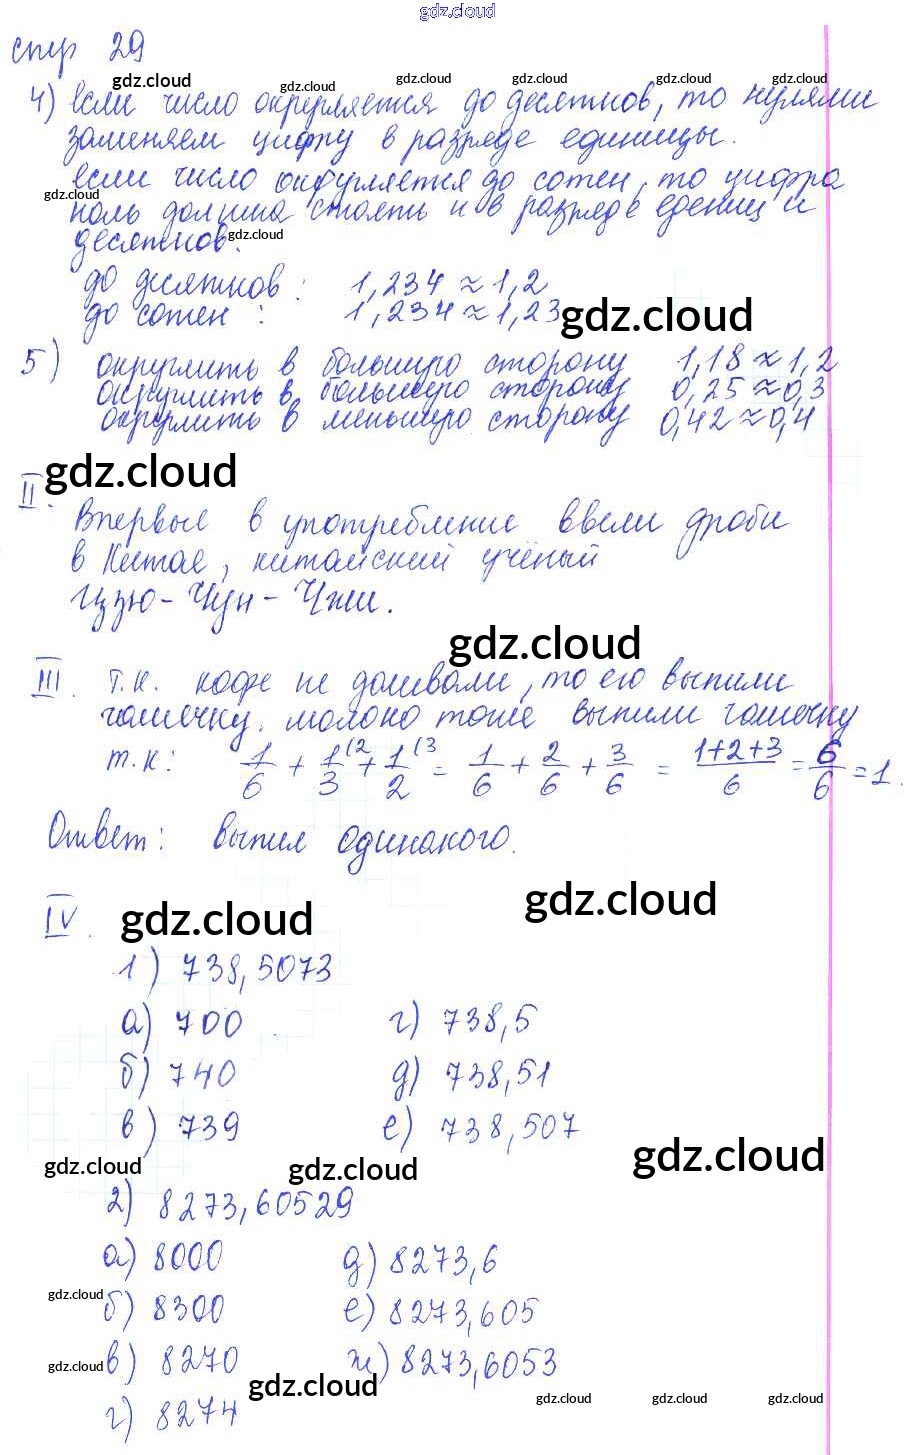 gdz.cloud
стр 29
gdz.cloud gdz.cloud gdz.cloud gdz.cloud gdz.cloud
4) если число округляется до десятков, то нулями
заменяем цифру в разряде единицы.
если число округляется до сотен, то цифра
gdz.cloud
ноль должна стоять и в разряде едениц и
десятков.
gdz.cloud
до десятков: 1,234 ≈ 1,2
до сотен: 1,234 ≈ 1,23
gdz.cloud
5) округлить в большую сторону 1,18 ≈ 1,2
округлить в большую сторону 0,25 ≈ 0,3
округлить в меньшую сторону 0,42 ≈ 0,4
gdz.cloud
II.
Впервые в употребление ввели дроби
в Китае, китайский учёный
Цзю-Чун-Чжи.
gdz.cloud
III. т.к. кофе не доливали, то его выпили
чашечку. молоко тоже выпили чашечку
т.к: 1/6 + 1/3 (2 + 1/2 (3 = 1/6 + 2/6 + 3/6 = 1+2+3/6 = 6/6 = 1.
Ответ: выпил одинакого.
gdz.cloud
IV. gdz.cloud
1) 738,5073
а) 700 г) 738,5
б) 740 д) 738,51
в) 739 е) 738,507
gdz.cloud gdz.cloud gdz.cloud
2) 8273,60529
а) 8000 д) 8273,6
gdz.cloud
б) 8300 е) 8273,605
gdz.cloud
в) 8270 ж) 8273,6053
gdz.cloud
г) 8274
gdz.cloud gdz.cloud gdz.cloud